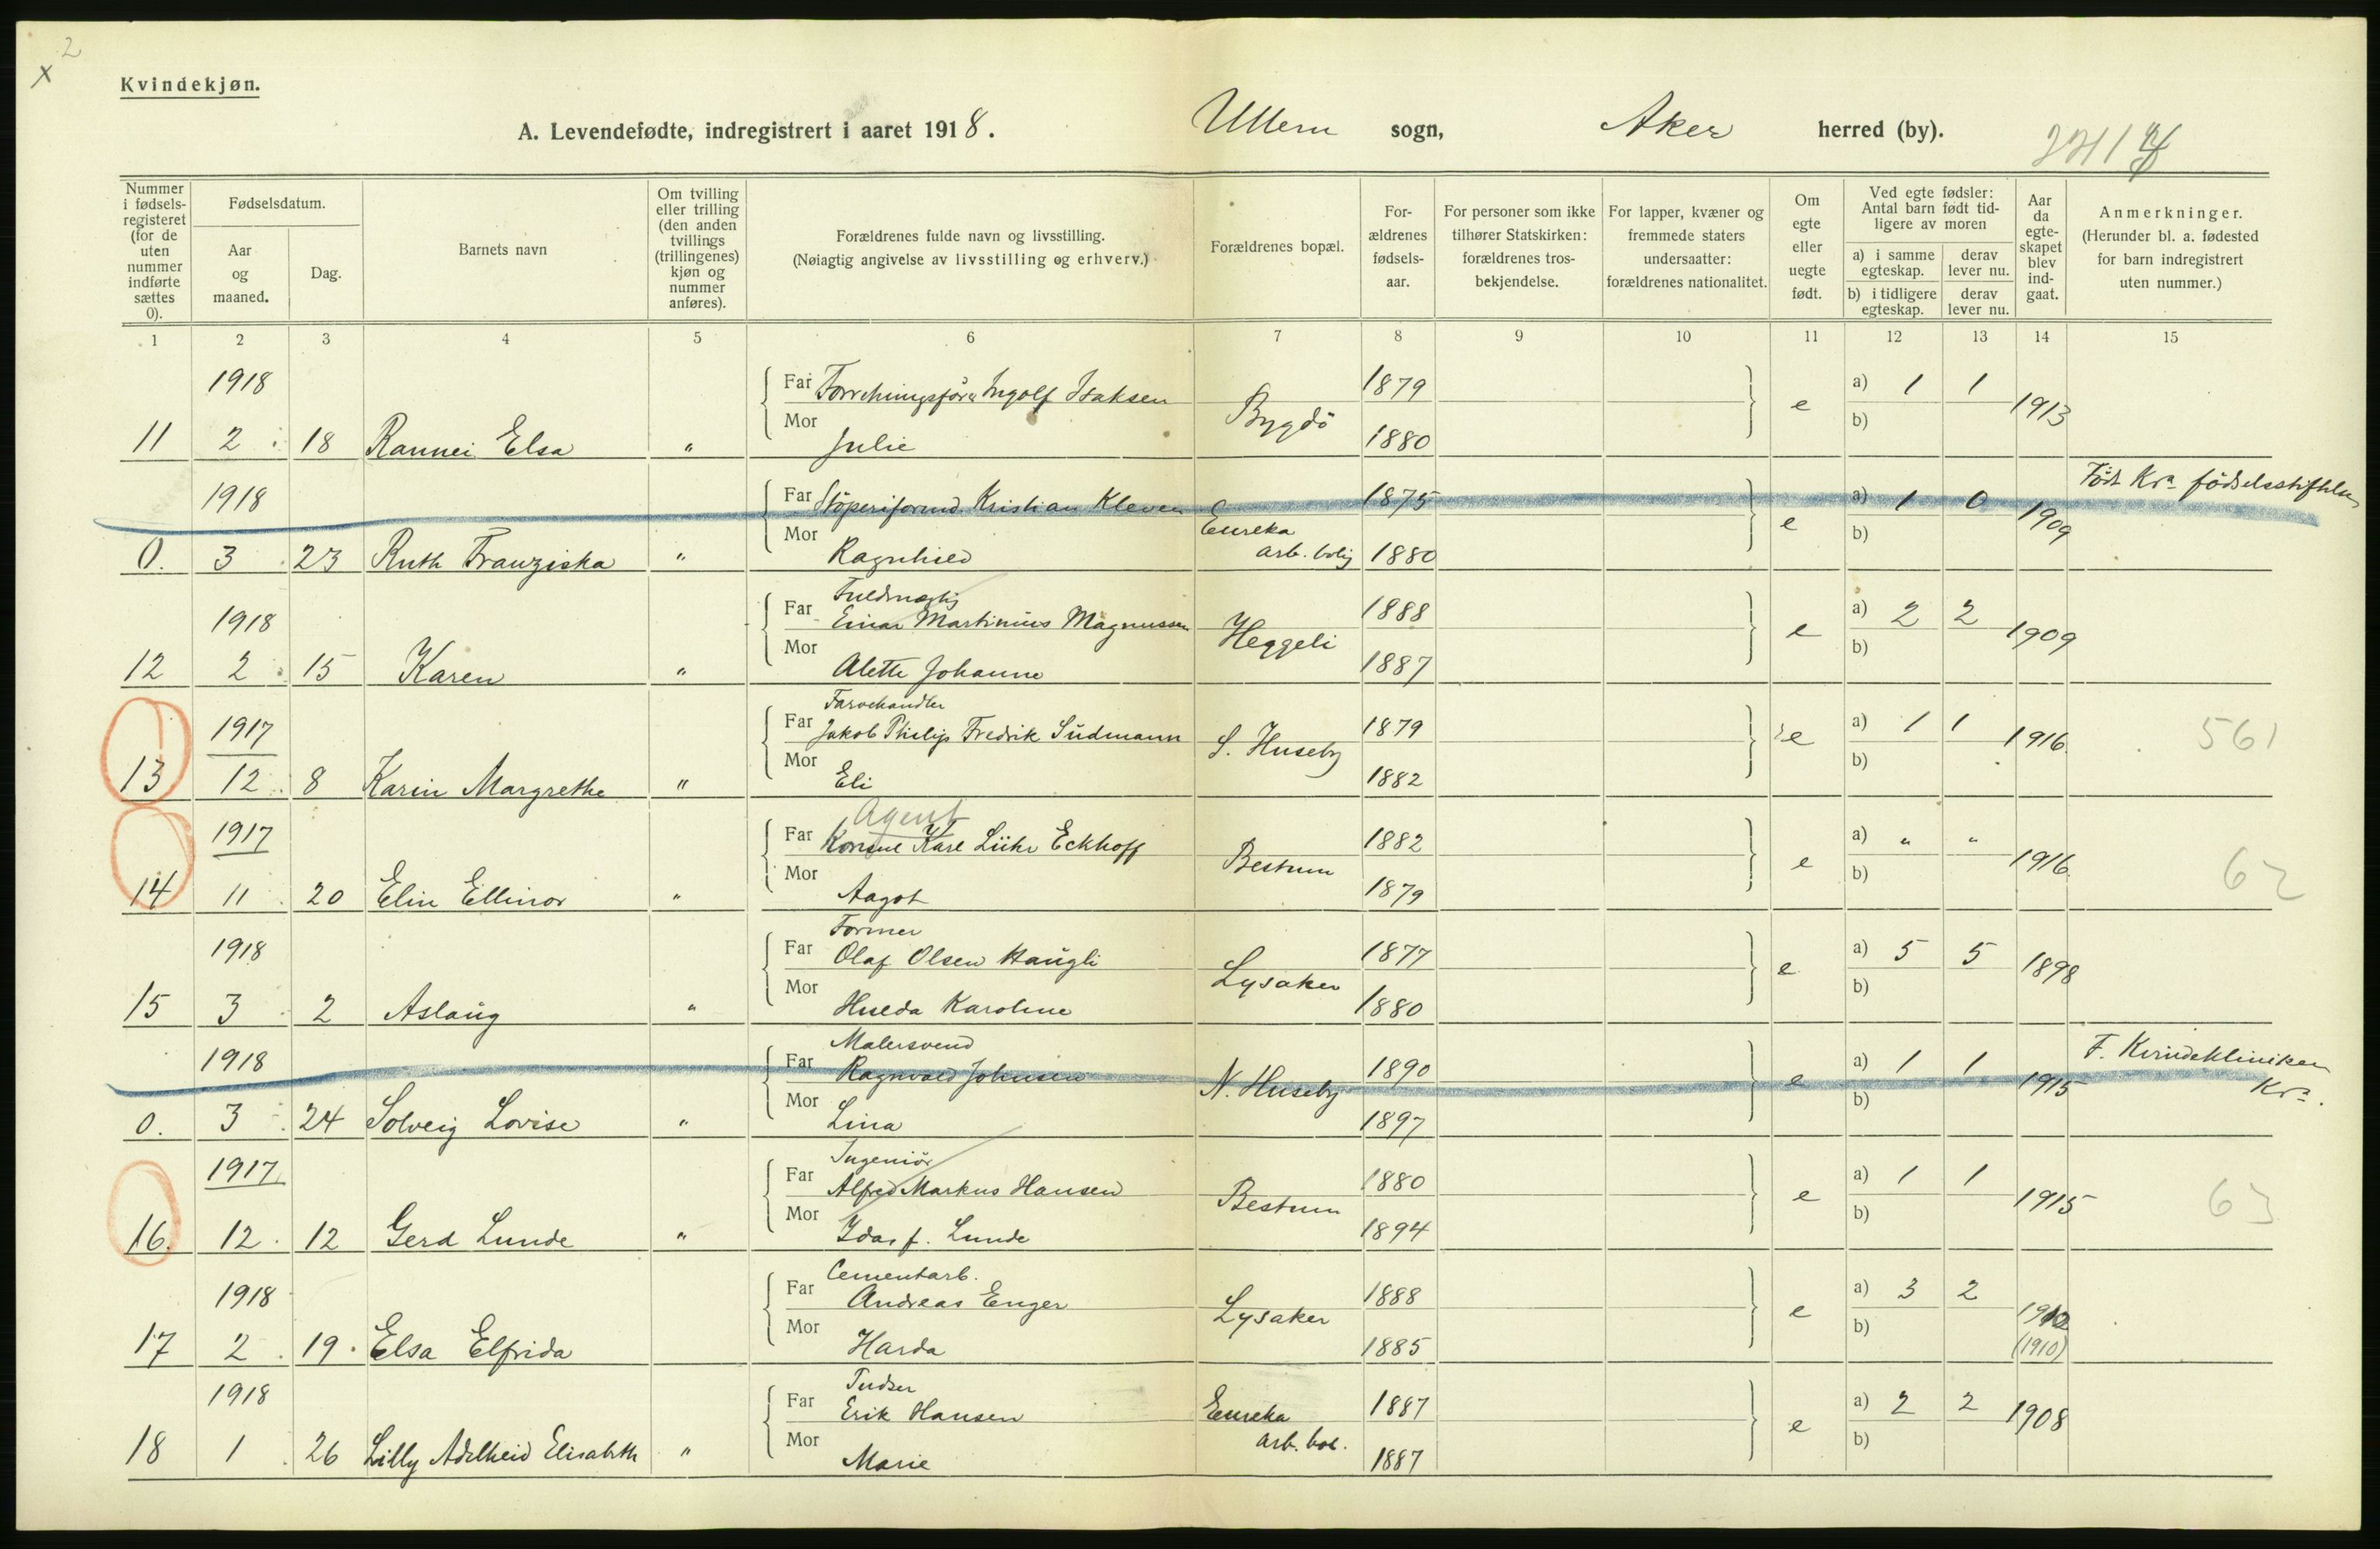 x 2
Kvindekjøn.
A. Levendefødte, indregistrert i aaret 1918. Ullern sogn, Aker herred (by).
Nummer i fødsels-registeret (for de uten nummer indførte sættes 0).
Fødselsdatum.
Aar og maaned.
Dag.
Barnets navn
Om tvilling eller trilling (den anden tvillings (trillingenes) kjøn og nummer anføres).
Forældrenes fulde navn og livsstilling.
(Nøiagtig angivelse av livsstilling og erhverv.)
Forældrenes bopæl.
For-ældrenes fødsels-aar.
For personer som ikke tilhører Statskirken: forældrenes tros-bekjendelse.
For lapper, kvæner og fremmede staters undersaatter: forældrenes nationalitet.
Om egte eller uegte født.
Ved egte fødsler: Antal barn født tid-ligere av moren
a) i samme egteskap. derav lever nu.
b) i tidligere egteskap. derav lever nu.
Aar da egte-skapet blev ind-gaat.
Anmerkninger.
(Herunder bl. a. fødested for barn indregistrert uten nummer.)
1 2 3 4 5 6 7 8 9 10 11 12 13 14 15
1918 Far Forretningsfører Ingolf Isaksen Bygdö 1879 e a) 1 1 1913
11 2 18 Rannei Elsa " Mor Julie 1880 b)
1918 Far Støperiformd. Kristian Kleven Eureka arb. bolig 1875 e a) 1 0 1909 Født Kra fødselsstiftelsen
0. 3 23 Ruth Franziska " Mor Ragnhild 1880 b)
Fuldmægtig
1918 Far Einar Martinius Magnussen Heggeli 1888 e a) 2 2 1909
12 2 15 Karen " Mor Alette Johanne 1887 b)
Farvehandler
1917 Far Jakob Philip Fredrik Südmann S. Huseby 1879 e a) 1 1 1916 561
13 12 8 Karin Margrethe " Mor Eli 1882 b)
Agent
1917 Far Konsul Karl Lühr Eckhoff Bestum 1882 e a) " " 1916. 62
14 11 20 Elin Ellinor " Mor Aagot 1879 b)
Former
1918 Far Olaf Olsen Haugli Lysaker 1877 e a) 5 5 1898
15 3 2 Aslaug " Mor Hulda Karoline 1880 b)
Malersvend
1918 Far Ragnvald Johnsen N. Huseby 1890 e a) 1 1 1915 F. Kvindekliniken Kra.
0. 3 24 Solveig Lovise " Mor Lina 1897 b)
Ingeniør
1917 Far Alfred Markus Hansen Bestum 1880 e a) 1 1 1915 63
16. 12. 12 Gerd Lunde " Mor Ida, f. Lunde 1894 b)
Cementarb.
1918 Far Andreas Enger Lysaker 1888 e a) 3 2 1912 (1910)
17 2 19. Elsa Elfrida Mor Harda 1885 b)
1918 Far Erik Hansen Eureka arb. bol. 1887 e a) 2 2 1908
18 1 26 Lilly Adelheid Elisabeth " Mor Marie 1887 b)